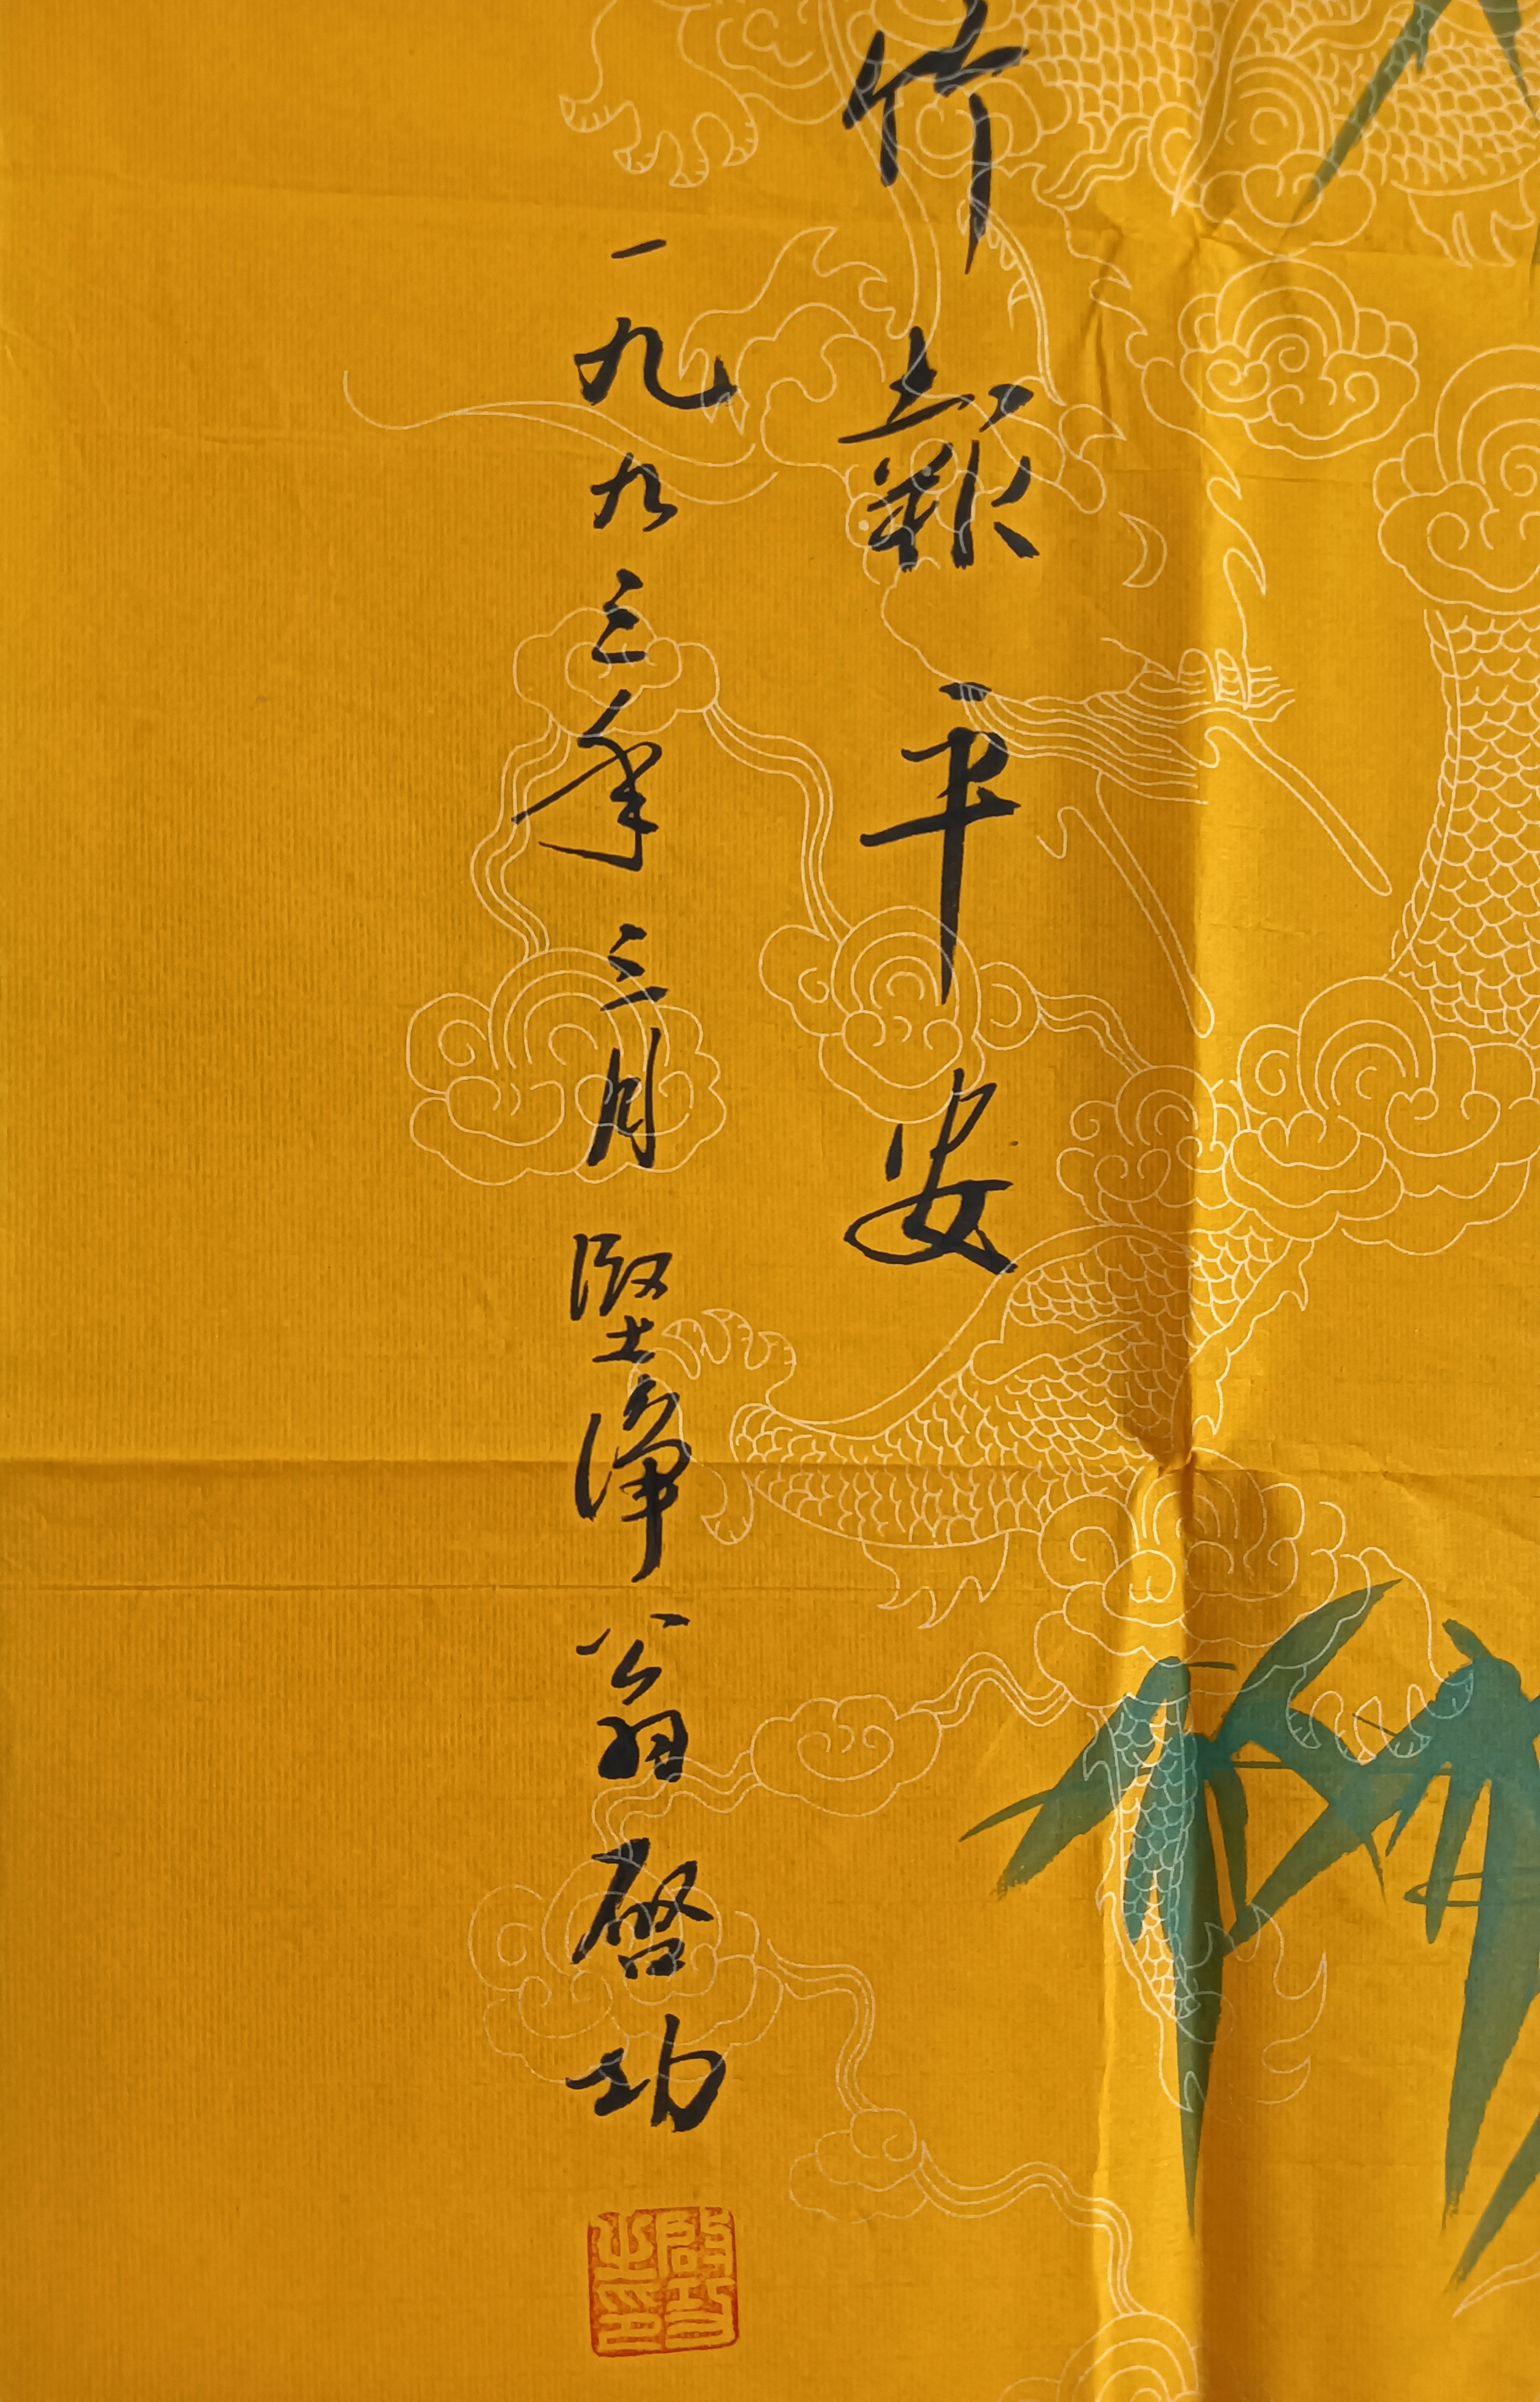 竹報平安
一九九三年三月堅淨翁啓功
啟功之印